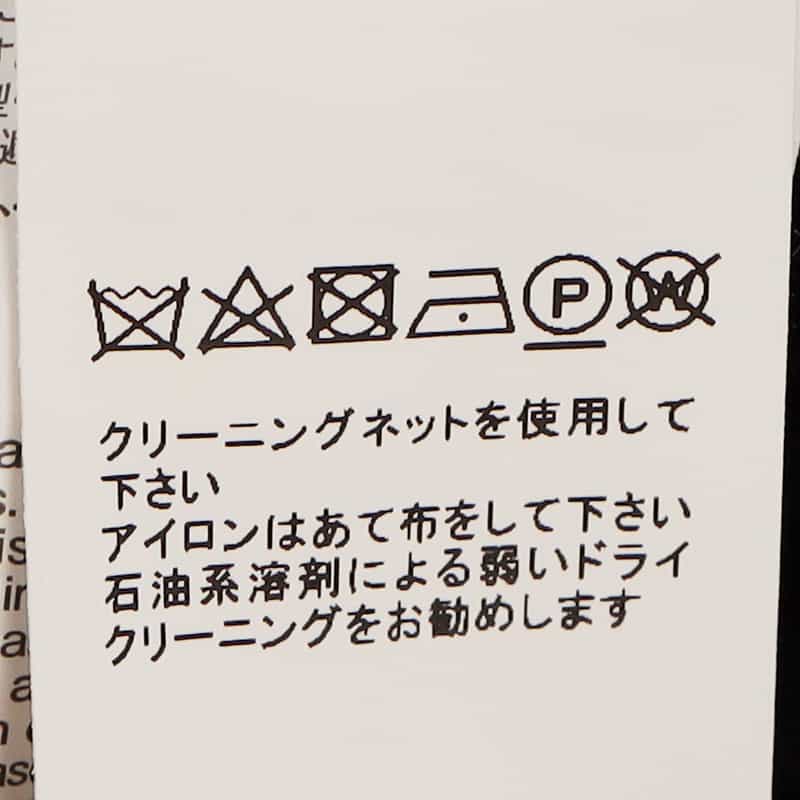 P
W
クリーニングネットを使用して
下さい
アイロンはあて布をして下さい
石油系溶剤による弱いドライ
クリーニングをお勧めします